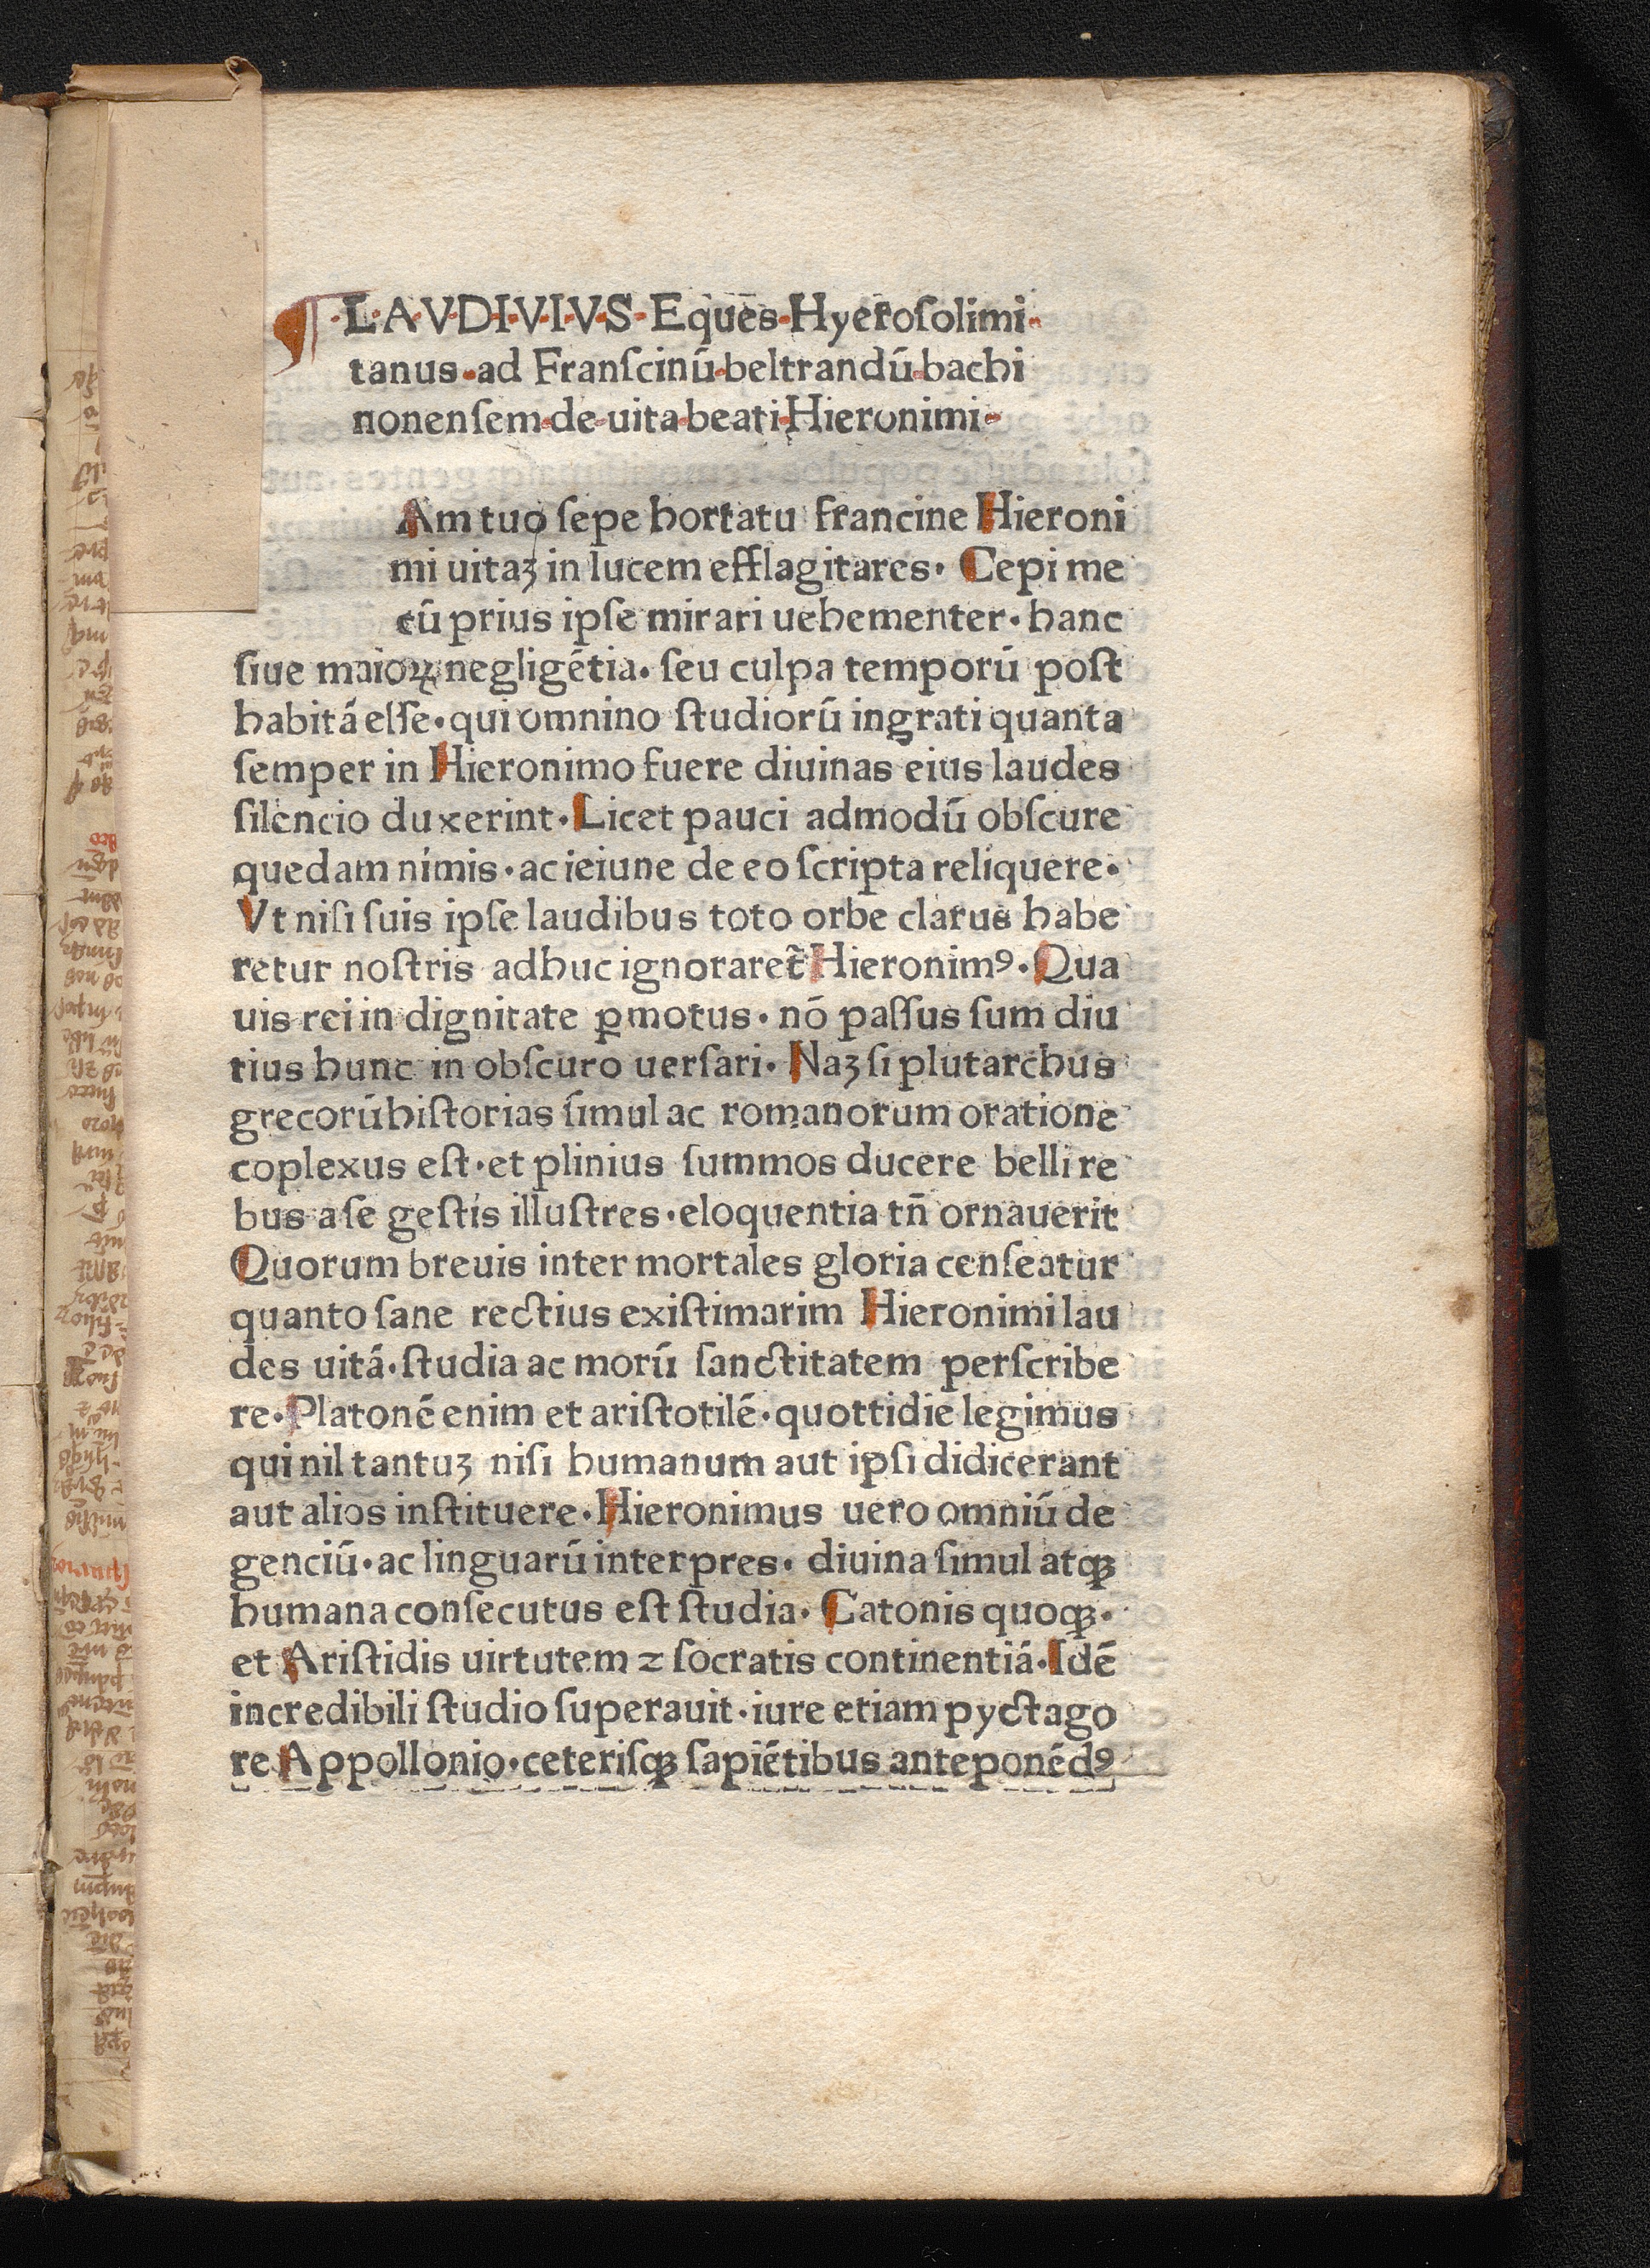 LAVDIVIVS Eques Hyeroſolimi
tanus ad Franſcinū beltrandū bachi
nonenſem de uita beati Hieronimi
Am tuo ſepe hortatu francine Hieroni
mi uitaꝫ in lucem efflagitares· Cepi me
cū prius ipſe mirari uehementer·hanc
ſiue maioꝝ negligētia· ſeu culpa temporū poſt
habitā eſſe·qui omnino ſtudiorū ingrati quanta
ſemper in Hieronimo fuere diuinas eius laudes
ſilencio duxerint·Licet pauci admodū obſcure
quedam nimis·ac ieiune de eo ſcripta reliquere·
Vt niſi ſuis ipſe laudibus toto orbe clarus habe
retur noſtris adhuc ignoraret̃ Hieronimꝰ·Qua
uis rei in dignitate ꝑmotus·nō paſſus ſum diu
tius hunc in obſcuro uerſari·Naꝫ ſi plutarchus
grecorū hiſtorias ſimul ac romanorum oratione
coplexus eſt·et plinius ſummos ducere belli re
bus a ſe geſtis illuſtres·eloquentia tn̄ ornauerit
Quorum breuis inter mortales gloria cenſeatur
quanto ſane rectius exiſtimarim Hieronimi lau
des uitā·ſtudia ac morū ſanctitatem perſcribe
re·Platonē enim et ariſtotilē·quottidie legimus
qui nil tantuꝫ niſi humanum aut ipſi didicerant
aut alios inſtituere·Hieronimus uero omniū de
genciū·ac linguarū interpres· diuina ſimul atqꝫ
humana conſecutus eſt ſtudia·Catonis quoqꝫ·
et Ariſtidis uirtutem ⁊ ſocratis continentiā·Idē
incredibili ſtudio ſuperauit·iure etiam pyctago
re Appollonio·ceteriſqꝫ ſapiētibus anteponēdꝰ